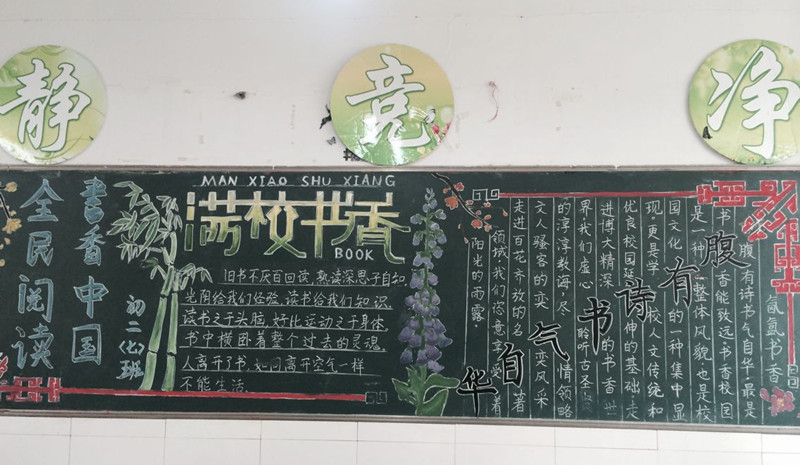 静 竞 净
书香中国
全民阅读
初二(七)班
MAN XIAO SHU XIANG
满校书香
BOOK
旧书不厌百回读,熟读深思子自知
光阴给我们经验,读书给我们知识
读书之于头脑,好比运动之于身体
书中横卧着整个过去的灵魂
人离开了书,如同离开空气一样
不能生活
腹有诗书气自华
氤氲书香
腹有诗书气自华,最是
书香能致远。书香校园
是一种整体风貌也是校
园文化的一种集中显
现,更是学校人文传统和
优良校园延伸的基础走
进博大精深的书香世
界我们虚心聆听古圣
的谆谆教诲,尽情领略
文人骚客的奕奕风采
走进百花齐放的名著
领域,我们恣意享受着
阳光的雨露